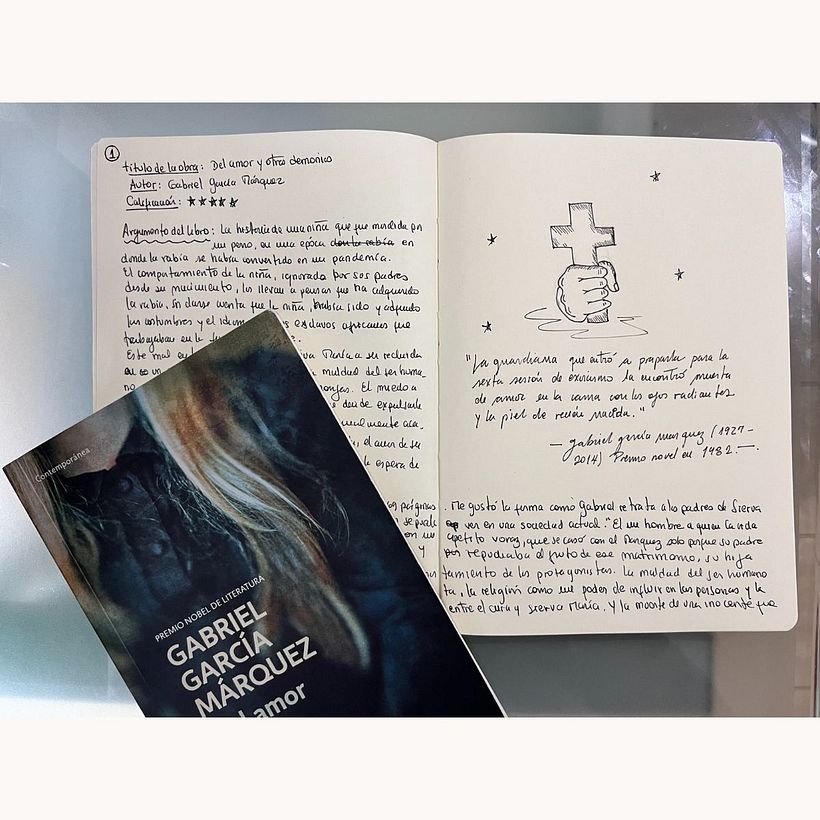 1
título de la obra: Del amor y otros demonios
Autor: Gabriel García Márquez
Calificación: ★★★★★
Argumento del libro: La historia de una niña que fue mordida por
un perro, en una época donde la rabia en
donde la rabia se había convertido en una pandemia.
El comportamiento de la niña, ignorada por sus padres
desde su nacimiento, los llevan a pensar que ha adquirido
la rabia, sin darse cuenta que la niña, había sido y adquirido
las costumbres y el esclavos africanos que
trabajaban en la
Este mal María a ser recluida
en maldad del ser huma-
no monjas. El miedo a
donde expulsarle
aca-
el amor de ser
la espera de
páginas
se puede
en un
y
"La guardiana que entró a prepararla para la
sexta sesión de exorcismo la encontró muerta
de amor en la cama con los ojos radiantes
y la piel de recién nacida."
— gabriel garcía marquez (1927 -
2014) Premio novel en 1982. —.
. Me gustó la forma como Gabriel retrata a los padres de Sierva
ver en una sociedad actual. "El un hombre a quien la vida
apetito voraz, que se casó con el Marquez solo porque su padre
por repudiaba el fruto de ese matrimonio, su hija
tamiento de los protagonistas. La maldad del ser humano
ta, la religión como un poder de influir en las personas y la
entre el cura y Sierva María, y la muerte de una inocente que
Contemporánea
PREMIO NOBEL DE LITERATURA
GABRIEL
GARCÍA
MÁRQUEZ
amor